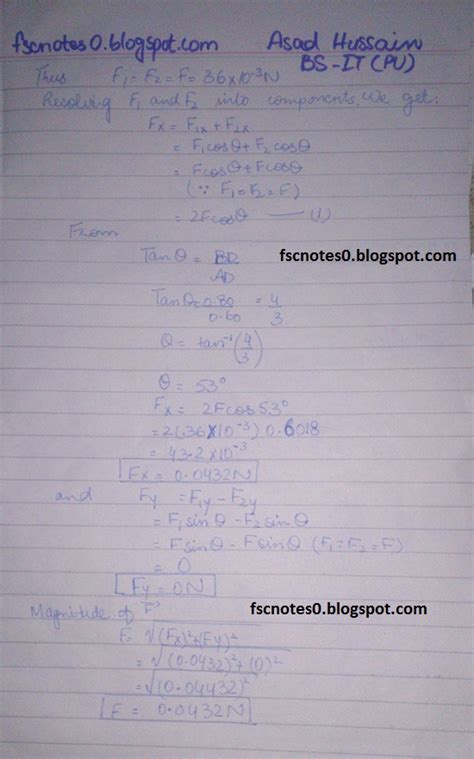 fscnotes0.blogspot.com Asad Hussain
BS-IT (PU)
Thus F₁ = F₂ = F = 36×10⁻³N
Resolving F₁ and F₂ into components, we get:
Fx = F₁x + F₂x
= F₁cosθ + F₂cosθ
= Fcosθ + Fcosθ
(∵ F₁ = F₂ = F)
= 2Fcosθ —— (1)
From
Tanθ = BD/AD
fscnotes0.blogspot.com
Tanθ = 0.80/0.60 = 4/3
θ = tan⁻¹(4/3)
θ = 53°
Fx = 2Fcos53°
= 2(36×10⁻³) 0.6018
= 43.2×10⁻³
Fx = 0.0432N
and Fy = F₁y − F₂y
= F₁sinθ − F₂sinθ
= Fsinθ − Fsinθ (F₁ = F₂ = F)
= 0
Fy = 0N
Magnitude of F
fscnotes0.blogspot.com
F = √(Fx)²+(Fy)²
= √(0.0432)²+(0)²
= √(0.04432)²
F = 0.0432N